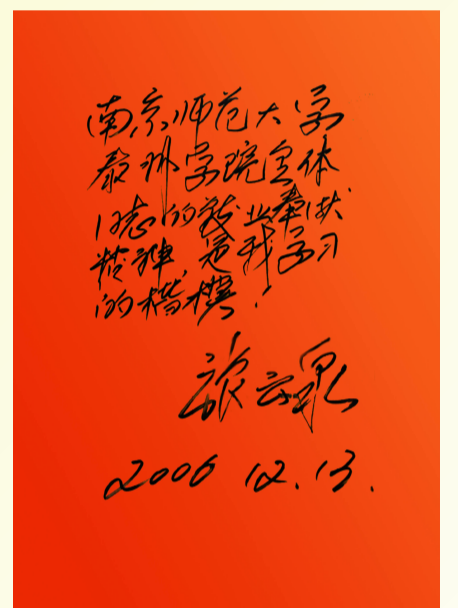 南京师范大学
泰州学院全体
同志的敬业奉献
精神,是我学习
的楷模!
云泉
2006 12.13.